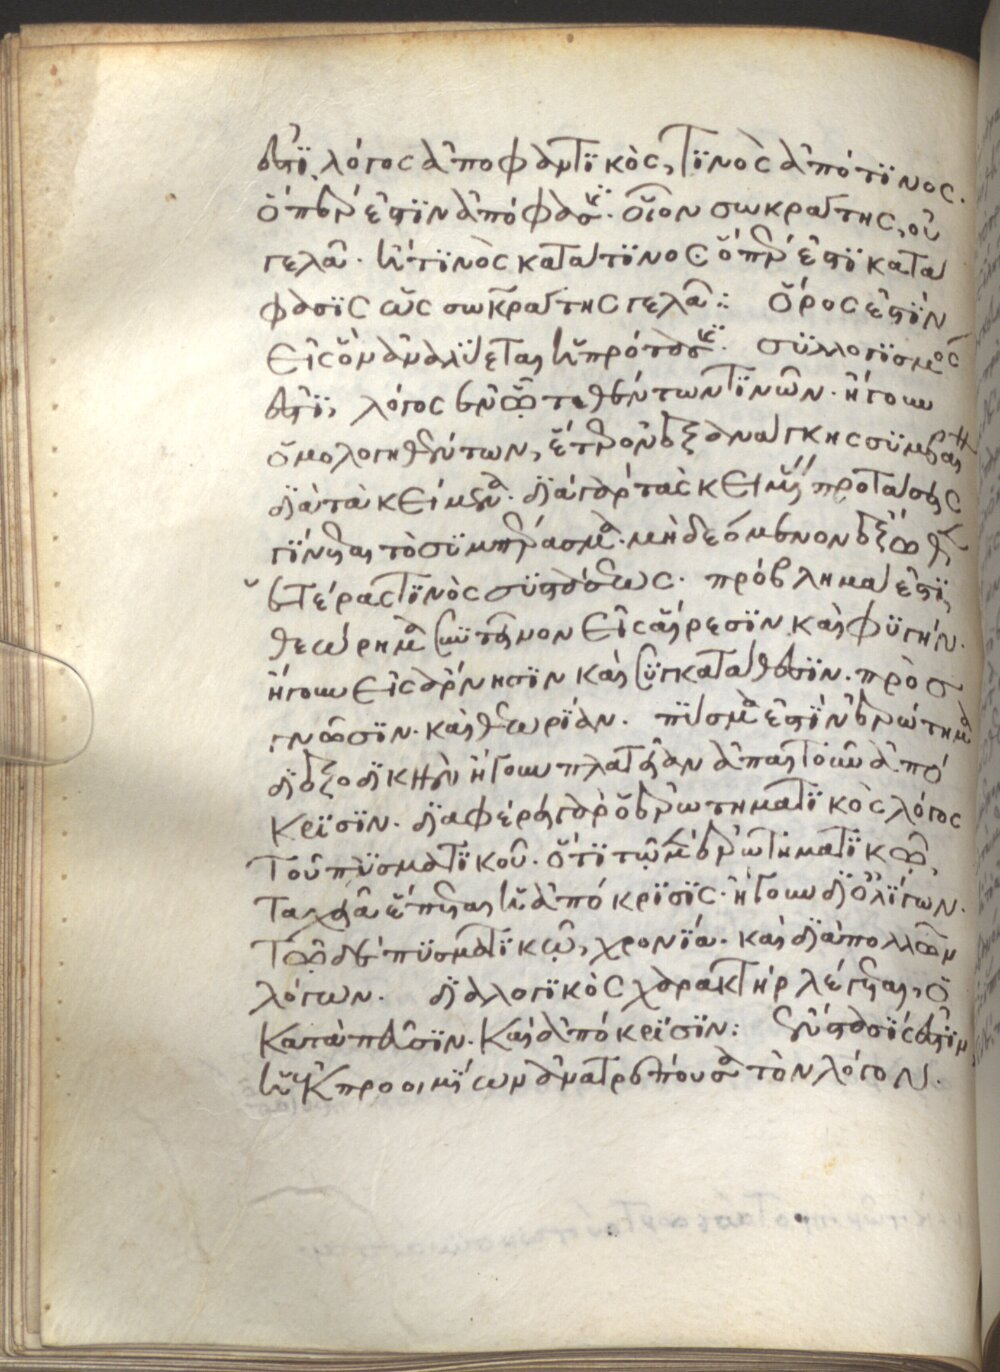 ἐστὶ λόγος ἀποφαντϊκὸς, τϊνὸς ἀπό τϊνος.
ὅπερ ἐστὶν ἀπόφασϊς. οἷον σωκράτης, οὐ
γελᾶ. ἢ τϊνὸς κατά τϊνος ὅπερ ἐστὶ κατά
φασϊς ὡς σωκράτης γελᾶ: ὅρος ἐστὶν
εἰς ὃν ἀναλύεται ἡ πρότασϊς. συλλογϊσμὸς
ἐστὶ, λόγος ἐν ᾧ τεθέντων τϊνῶν. ἤγουν
ὁμολογηθέντων, ἕτερον ἐξ ἀνάγκης συμβαίνη
διὰ τὰ κείμενα. διὰ γὰρ τὰς κειμένας προτάσεις
γίνεται τὸ συμπέρασμα. μὴ δεόμενον ἔξωθεν
ἑτέρας τινὸς συστάσεως. πρόβλημα ἐστὶ,
θεώρημα συντεῖνον εἰς αἵρεσϊν καὶ φυγήν.
ἤγουν εἰς ἄρνησϊν καὶ συγκατάθεσϊν. πρὸς
γνῶσϊν. καὶ θεωρίαν. πύσμα ἐστὶν ἐρώτημα
διεξοδικὴν ἤγουν πλατεῖαν ἀπαιτοῦν ἀπό
κρϊσϊν. διαφέρει γὰρ ὁ ἐρωτηματϊκὸς λόγος
τοῦ πυσματϊκοῦ. ὅτϊ τῷ μὲν ἐρωτηματϊκῷ,
ταχεῖα ἕπεται ἡ ἀπόκρϊσϊς. ἤγουν δι᾽ ὀλίγων.
τῷ δὲ πυσματϊκῷ, χρονία. καὶ διὰ πολλῶν
λόγων. διαλογϊκὸς χαρακτὴρ λέγεται, ὁ
κατὰ πεῦσϊν. καὶ ἀπόκρισϊν: ἔνστασϊς ἐστὶν
ἡ ἐκ προοιμίων ἀνατρέπουσα τὸν λόγον.